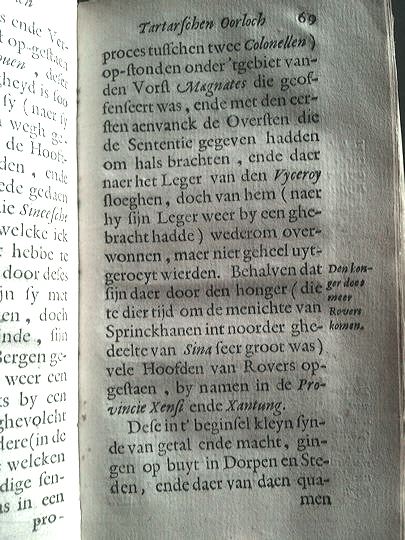 n
s ende Ver-
t op-gestaen
ruesen, dese
gheyd is soo
sy (naer sy
wegh ge-
de Hoof-
den, ende
ede gedaen
ie Sineesche
welcke ick
hebbe te
door deses
jn sy met
en, doch
inde, sijn
Bergen ge-
weer een
ks by een
ghevolcht
dere (in de
welcken
dige sen-
as in een
pro-
Tartarschen Oorloch 69
proces tusschen twee Colonellen)
op-stonden onder 'tgebiet van-
den Vorst Magnates die geof-
fenseert was, ende met den eer-
sten aenvanck de Oversten die
de Sententie gegeven hadden
om hals brachten, ende daer
naer het Leger van den Vyceroy
sloeghen, doch van hem (naer
hy sijn Leger weer by een ghe-
bracht hadde) wederom over-
wonnen, maer niet geheel uyt-
geroeyt wierden. Behalven dat
sijn daer door den honger (die
te dier tijd om de menichte van
Sprinckhanen int noorder ghe-
deelte van Sina seer groot was)
vele Hoofden van Rovers op-
gestaen, by namen in de Pro-
vincie Xensi ende Xantung.
Dese in t' beginsel kleyn sijn-
de van getal ende macht, gin-
gen op buyt in Dorpen en Ste-
den, ende daer van daen qua-
men
Den hon-
ger doet
meer
Rovers
komen.